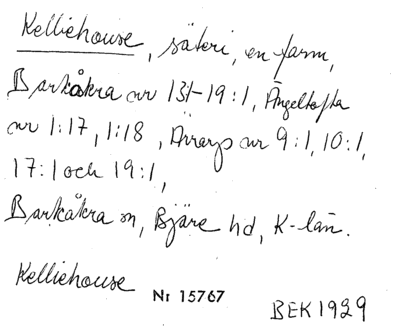 Kelliehouse, säteri, en farm,
Barkåkra nr 131-19:1, Ängeltofta
nr 1:17, 1:18, Ärrarps nr 9:1, 10:1,
17:1 och 19:1,
Barkåkra sn, Bjäre hd, K-län.
Kelliehouse Nr 15767 BEK 1929